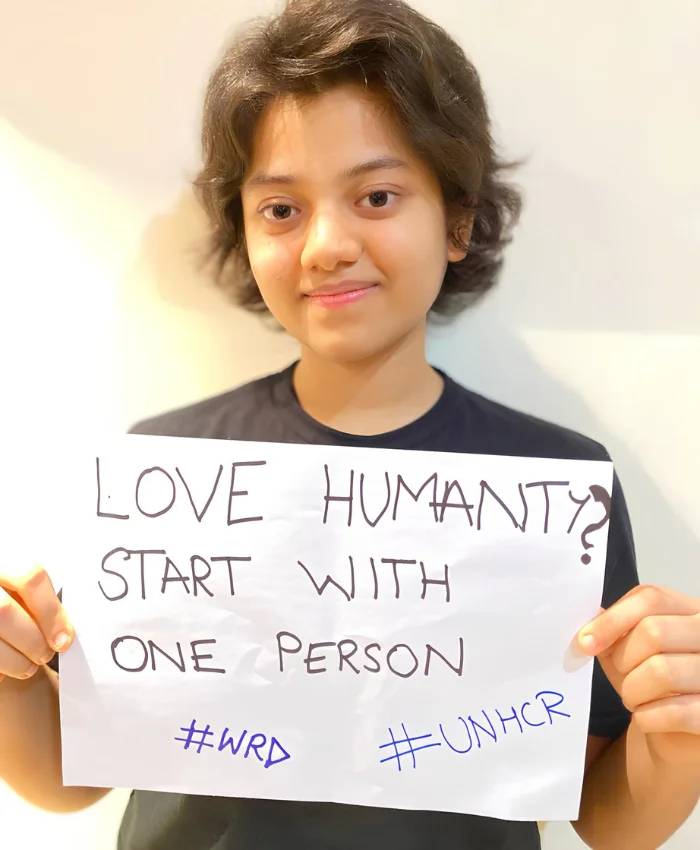 LOVE HUMANTY?
START WITH
ONE PERSON
#WRD #UNHCR